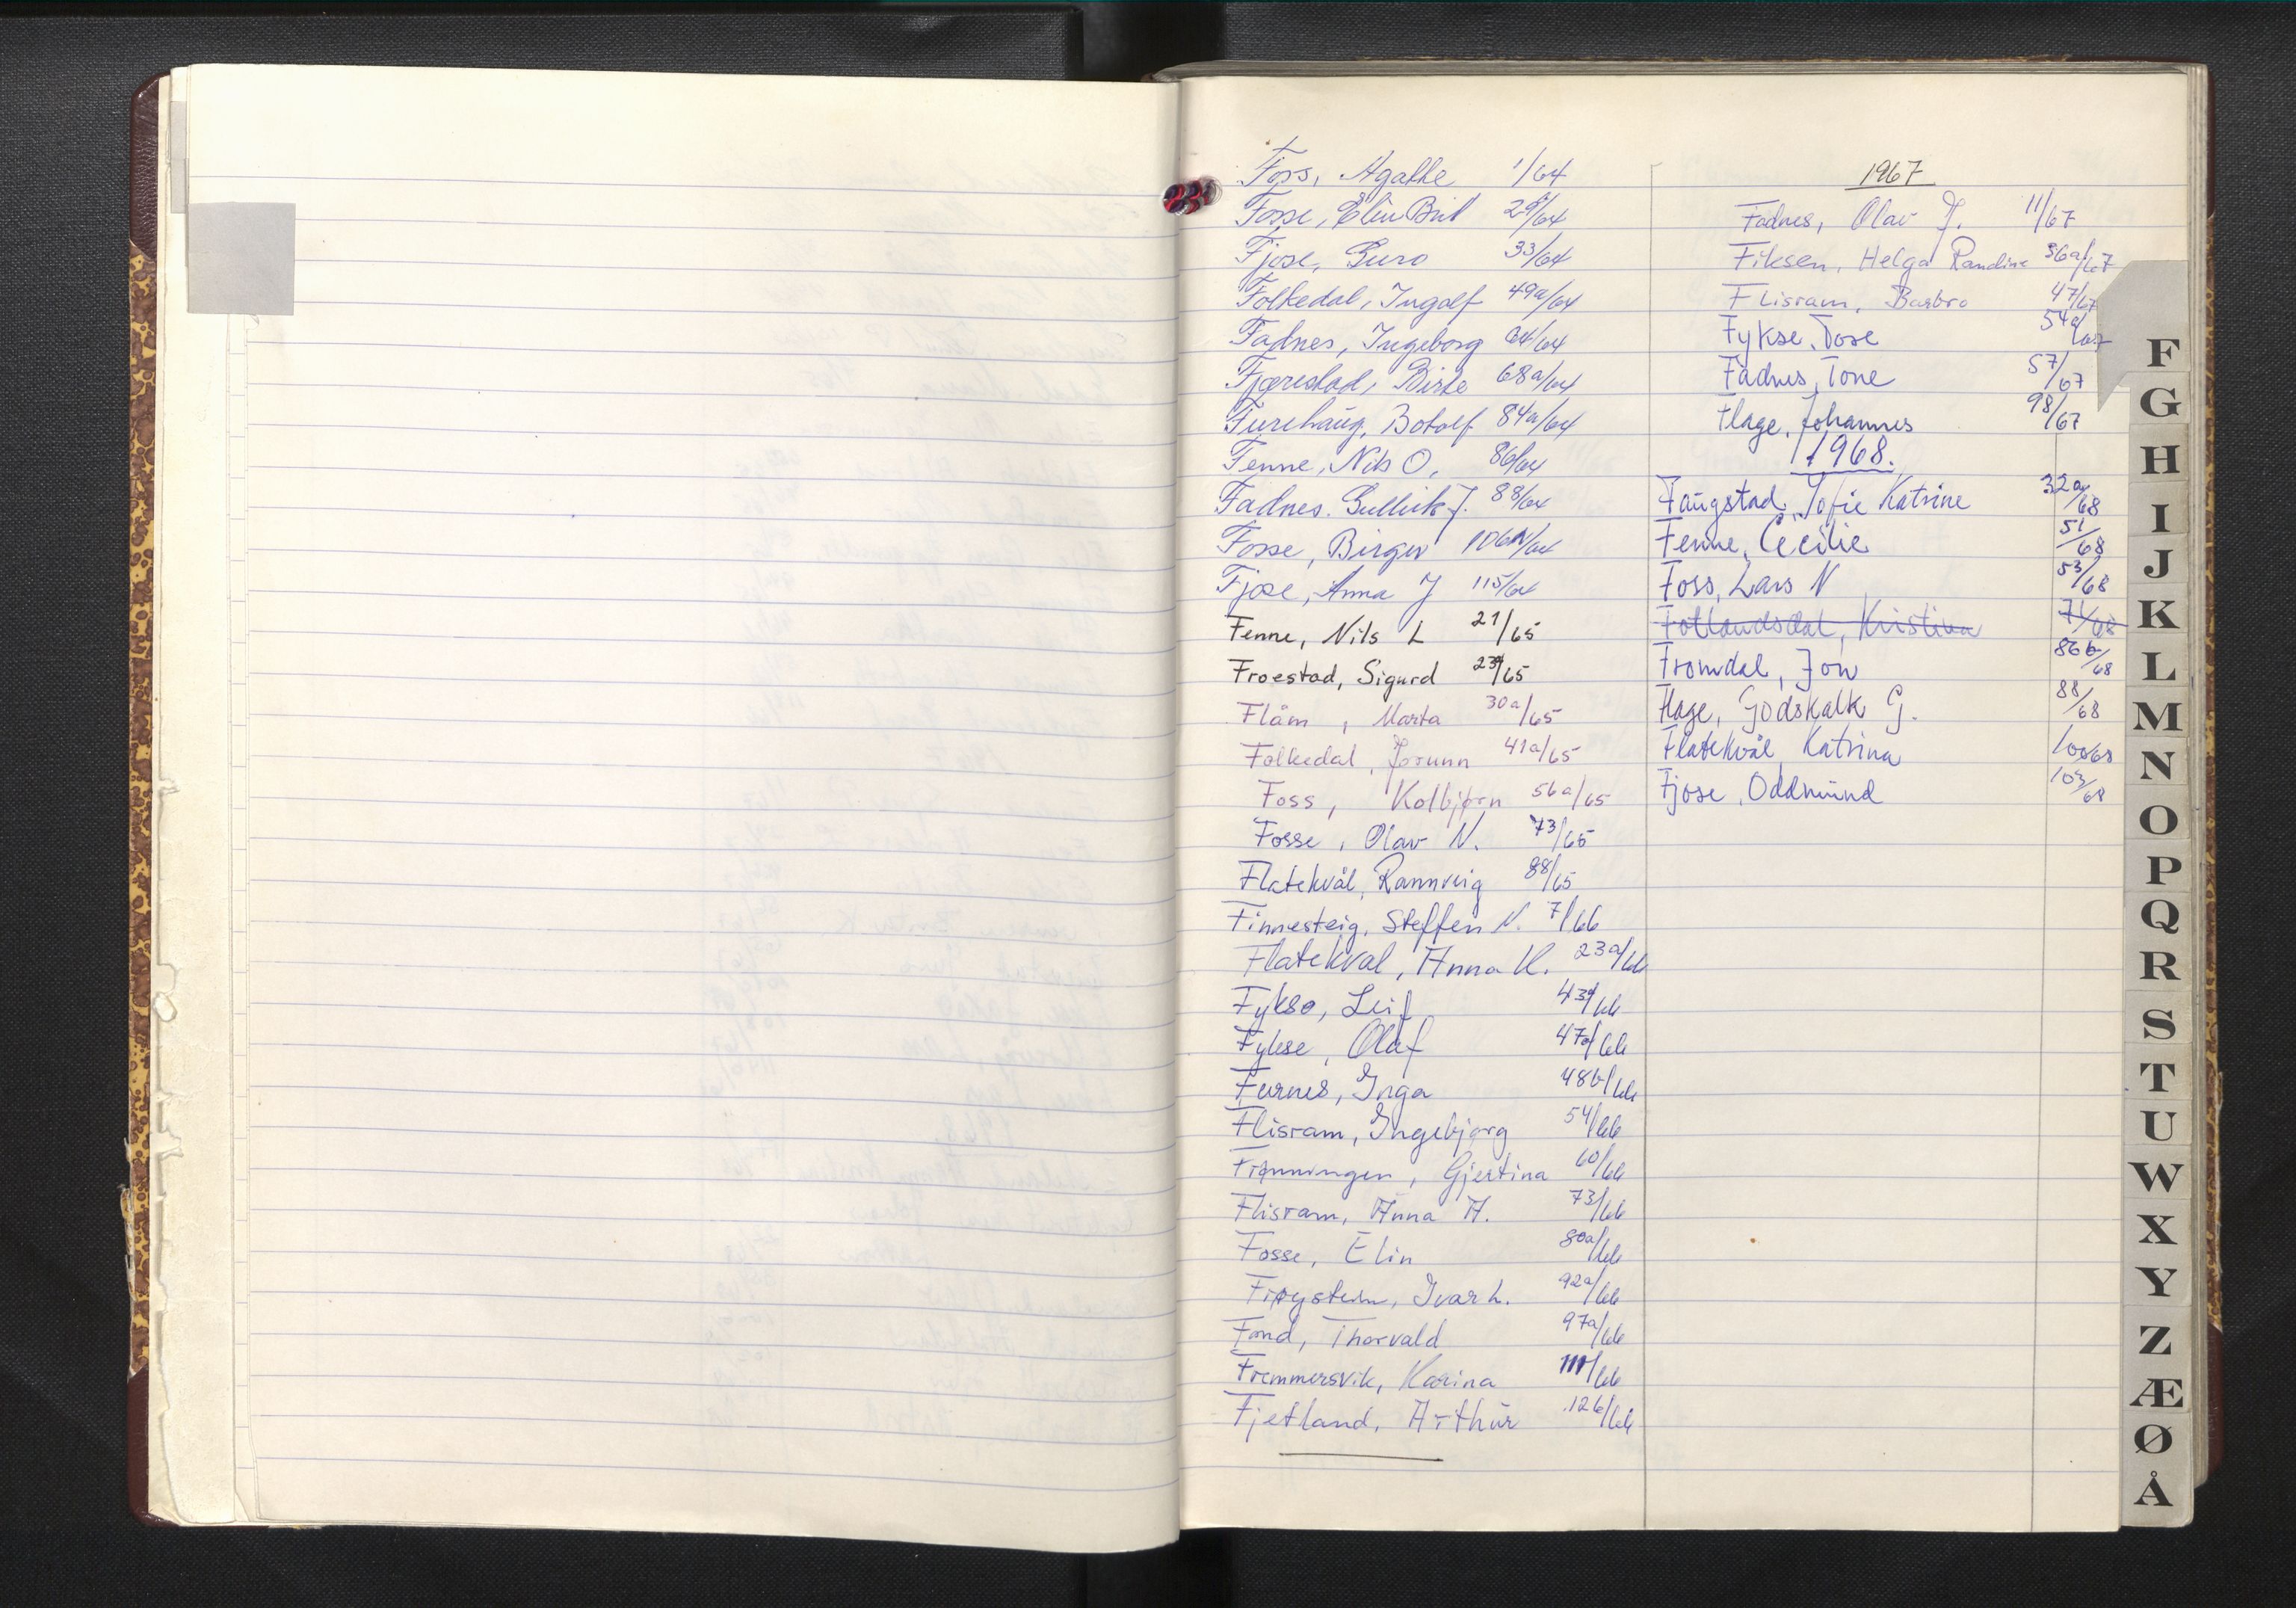 Foss, Agathe 1/64
Fosse, Elin Brit 29/64
Fjose, Guro 33/64
Folkedal, Ingolf 49a/64
Fadnes, Ingeborg 64/64
Fjærestad, Birte 68a/64
Furehaug, Botolf 84a/64
Fenne, Nils O. 86/64
Fadnes. Gullick J. 88/64
Fosse, Birger 106a/64
Fjose, Anna J 115/64
Fenne, Nils L 21/65
Froestad, Sigurd 23a/65
Flåm, Marta 30a/65
Folkedal, Jorunn 41a/65
Foss, Kolbjørn 56a/65
Fosse, Olav N. 73/65
Flatekvål, Rannveig 88/65
Finnesteig, Steffen N. 7/66
Flatekval, Anna K. 23a/66
Fykse, Leif 43a/66
Fykse, Olaf 47a/66
Furnes, Inga 48b/66
Flisram, Ingebjørg 54/66
Frønningen, Gjertina 60/66
Flisram, Anna A. 73/66
Fosse, Elin 80a/66
Frøystein, Ivar L. 92a/66
Fond, Thorvald 97a/66
Fremmersvik, Karina 111/66
Fjetland, Arthur 126/66
1967
Fadnes, Olav J. 11/67
Fiksen, Helga Randine 36a/67
Flisram, Barbro 47/67
Fykse, Tose 54a/67
Fadnes, Tone 57/67
Flage, Johannes 98/67
1968.
Faugstad, Sofie Katrine 32a/68
Fenne, Cecilie 51/68
Foss, Lars N 53/68
Fotlandsdal, Kristina 71/68
Fromdal, Jon 86b/68
Flage, Godskalk G. 88/68
Flatekvål Katrina 100/68
Fjose, Oddmund 103/68
F
G
H
I
J
K
L
M
N
O
P
Q
R
S
T
U
W
X
Y
Z
Æ
Ø
Å